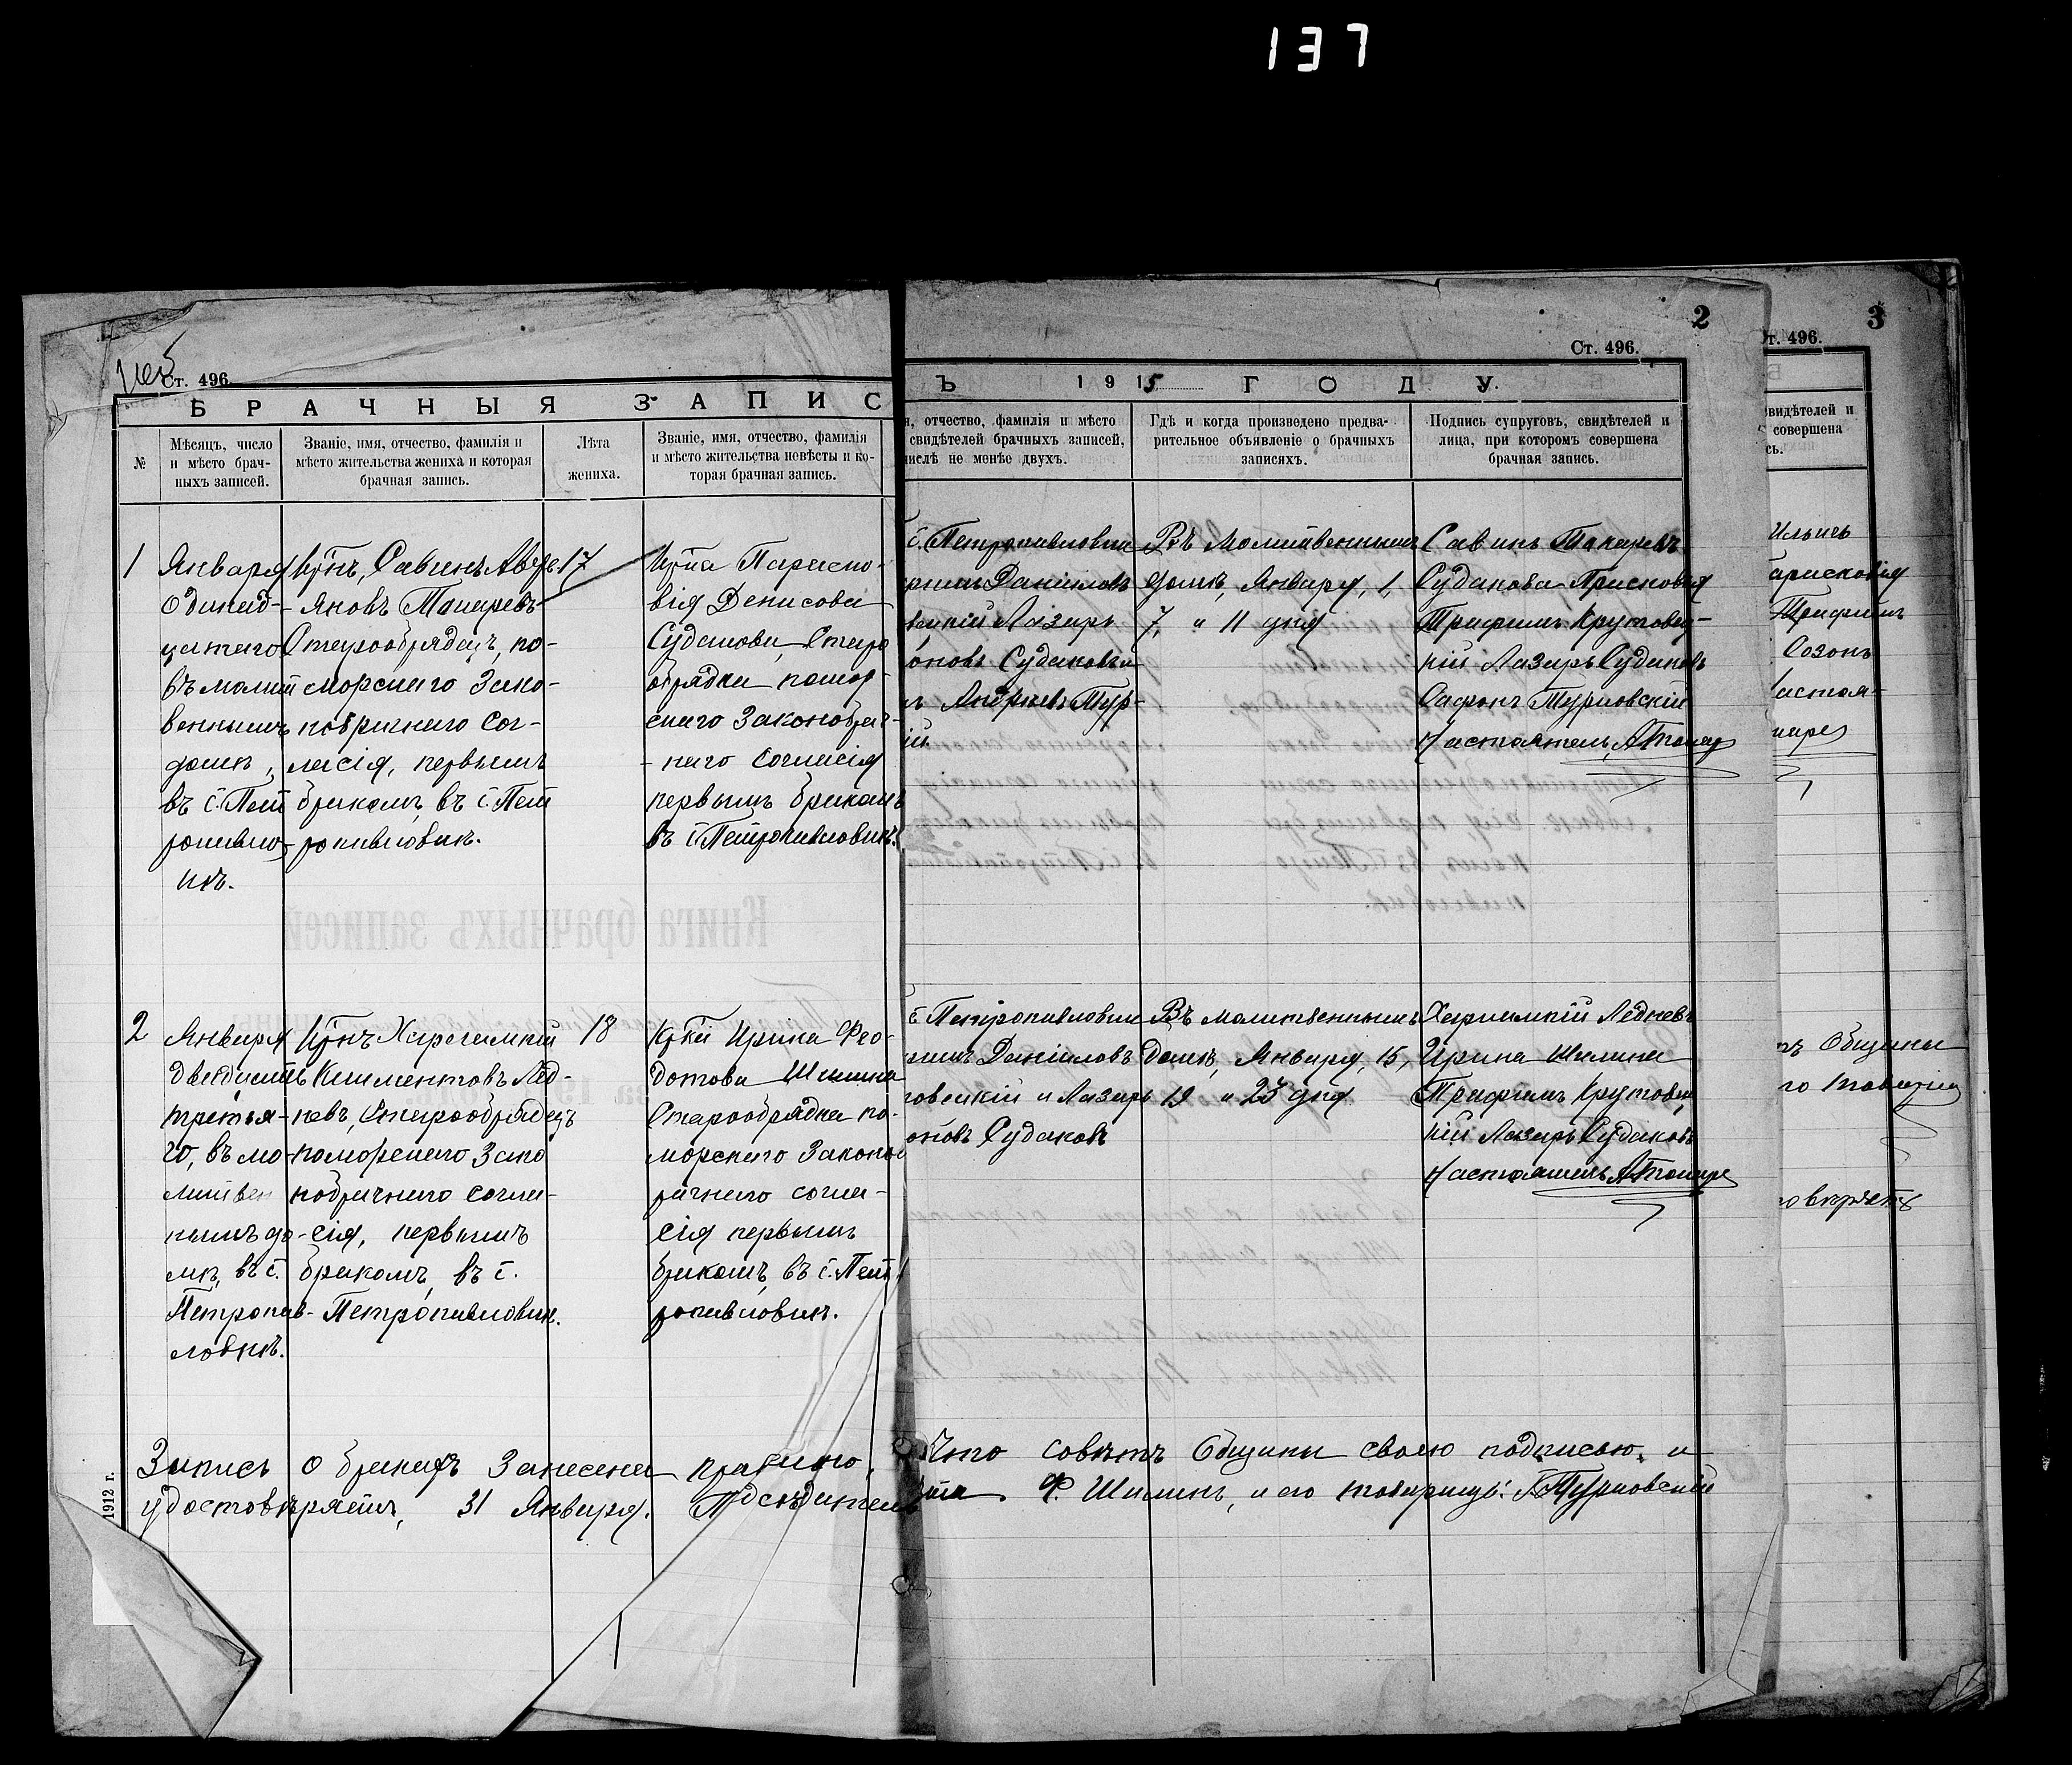 137
2
3
Ст. 496.
Ст. 496.
т. 496.
БРАЧНЫЯ ЗАПИС
Ъ 1915 ГОДУ.
№
Мѣсяцъ, число
и мѣсто брач-
ныхъ записей.
Званіе, имя, отчество, фамилія и
мѣсто жительства жениха и которая
брачная запись.
Лѣта
жениха.
Званіе, имя, отчество, фамилія
и мѣсто жительства невѣсты и ко-
торая брачная запись.
я, отчество, фамилія и мѣсто
свидѣтелей брачныхъ записей,
числѣ не менѣе двухъ.
Гдѣ и когда произведено предва-
рительное объявленіе о брачныхъ
записяхъ.
Подпись супруговъ, свидѣтелей и
лица, при которомъ совершена
брачная запись.
свидѣтелей и
совершена
сь.
1
Января
Одинад-
цатаго
въ молит
веннымъ
домѣ,
въ с. Пет
ропавло,
кѣ.
Савинъ Авер
яновъ Токаревъ
Старообрядецъ, по-
морскаго Зако-
нобрачнаго Сог-
ласія, первымъ
бракомъ, въ с. Пет
ропавловкѣ.
17
Параско-
вія Денисова
Судакова, Старо
обрядка помор-
скаго Законобрач-
-наго Согласія
первымъ бракомъ
въ с. Петропавловкѣ.
с. Петропавловки
Даніиловъ
вецкій Лазарь
оновъ Судаковъ и
Андреевъ Тур-
ій.
Въ Молитвеннымъ
домѣ, Января, 1,
7, и 11 дня
Савинъ Токаревъ
Судакова Прасковія
Трифилъ Крутовец-
кій Лазарь Судаковъ
Сафонъ Турковскій
Настоятель, А Токарь
Ильичъ
араскавія
Трифилъ
Созонъ
астоя-
каре
2
Января
двадцать
третья-
го, въ мо-
литвен
нымъ до-
мѣ, въ с.
Петропав-
ловкѣ.
Харлампій
Климентовъ Лед-
невъ, Старообрядецъ
поморскаго Зако
нобрачнаго согла-
сія, первымъ
бракомъ, въ с.
Петропавловкѣ.
18
Ирина Фео-
дотова Шилина
Старообрядка по-
морскаго Законо
рачнаго согла-
сія первымъ
бракомъ, въ с. Пет
ропавловкѣ.
с. Петропавловки
Даніиловъ
товецкій и Лазарь
оновъ Судаковъ
Въ молитвеннымъ
Домѣ, Января, 15,
19 и 23 дня
Харлампій Ледневъ
Ирина Шилина
Трифилъ Крутовец
кій Лазарь Судаковъ
Настоятель, А Токаре
ъ Общины
го товарищ
овѣряетъ
Запись о бракахъ Занесена правильно, Что совѣтъ Общины своею подписью и
удостовѣряетъ, 31 Января. Ф. Шилинъ, и его товарищъ: Г. Турковскій
1912 г.